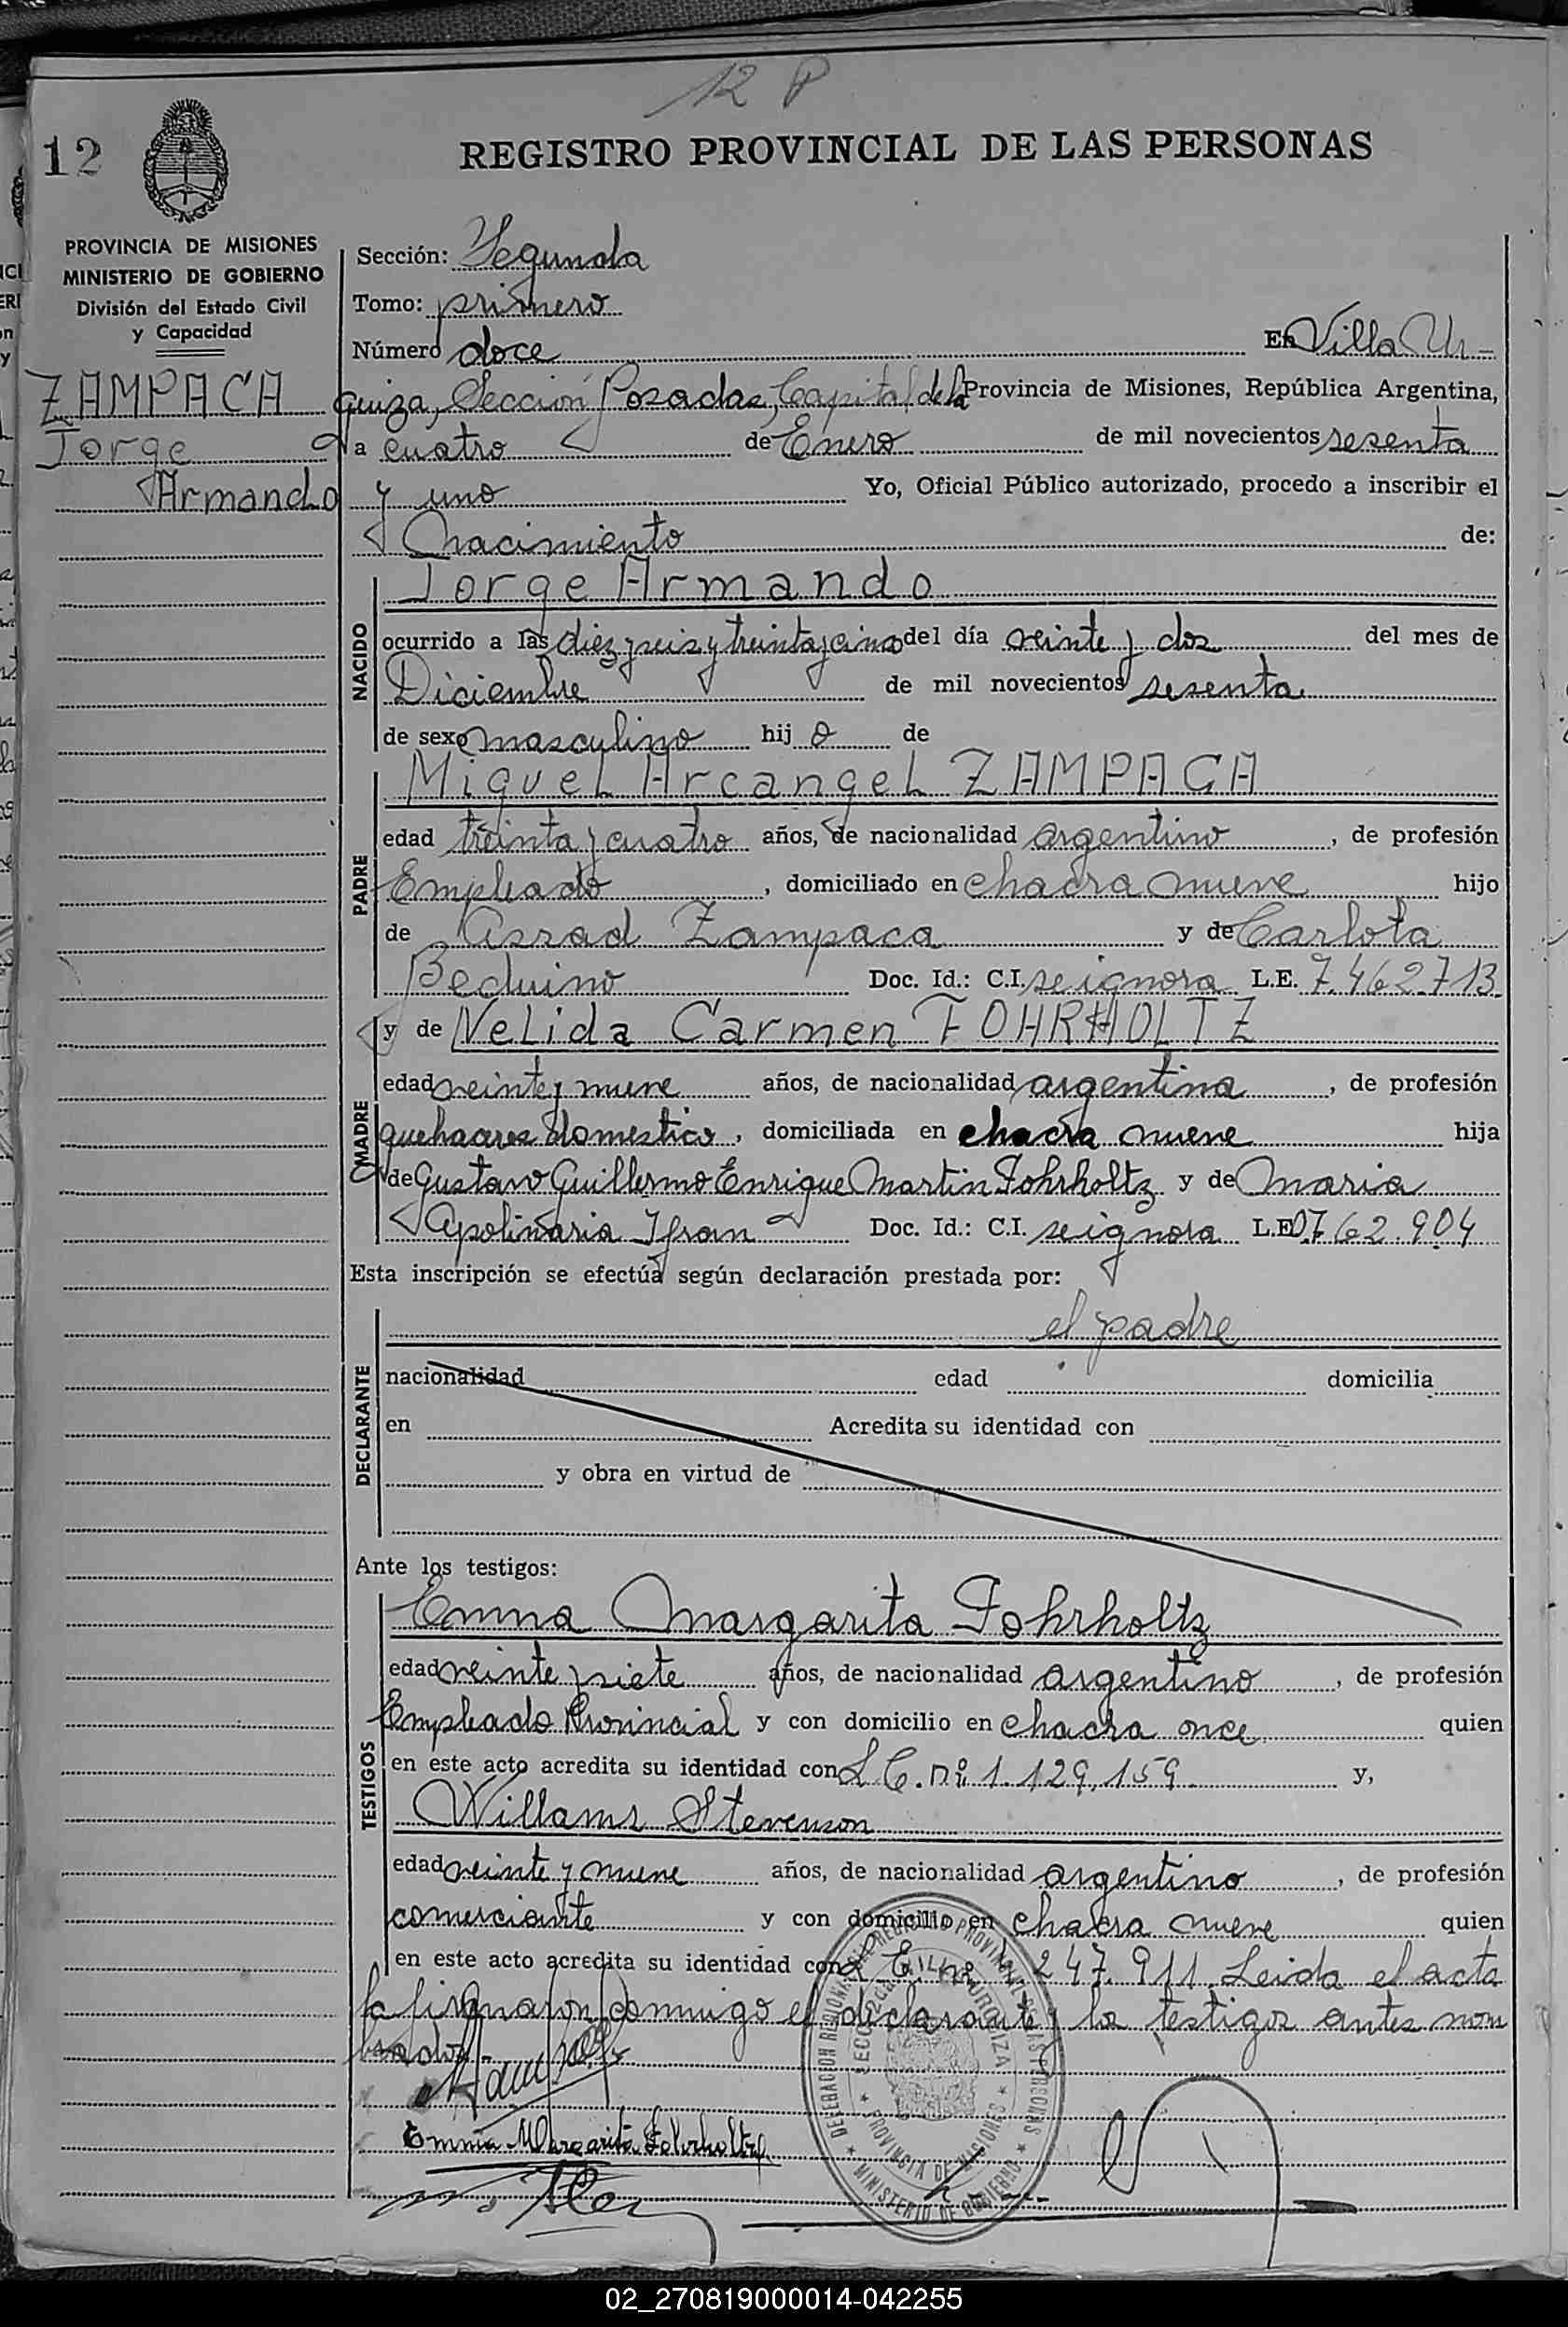 12 P
12
REGISTRO PROVINCIAL DE LAS PERSONAS
PROVINCIA DE MISIONES
MINISTERIO DE GOBIERNO
División del Estado Civil
y Capacidad
ZAMPACA
Jorge
Armando
Sección: Segunda
Tomo: primero
Número doce En Villa Ur-
quiza, Sección Posadas, Capital de la Provincia de Misiones, República Argentina,
a cuatro de Enero de mil novecientos sesenta
y uno Yo, Oficial Público autorizado, procedo a inscribir el
Nacimiento de:
NACIDO
Jorge Armando
ocurrido a las diez y seis y treinta y cinco del día veinte y dos del mes de
Diciembre de mil novecientos sesenta
de sexo masculino hijo de
PADRE
Miguel Arcangel ZAMPACA
edad treinta y cuatro años, de nacionalidad argentino, de profesión
Empleado, domiciliado en chacra nueve hijo
de Asrad Zampaca y de Carlota
Beduino Doc. Id.: C.I. se ignora L.E. 7.462.713
y de Nelida Carmen FOHRHOLTZ
MADRE
edad veinte y nueve años, de nacionalidad argentina, de profesión
quehaceres domestico, domiciliada en chacra nueve hija
de Gustavo Guillermo Enrique Martin Fohrholtz y de Maria
Apolinaria Ifran Doc. Id.: C.I. se ignora L.E. 0.762.904
Esta inscripción se efectúa según declaración prestada por:
DECLARANTE
el padre
nacionalidad edad domicilia
en Acredita su identidad con
y obra en virtud de
Ante los testigos:
TESTIGOS
Emma Margarita Fohrholtz
edad veinte y siete años, de nacionalidad argentino, de profesión
Empleado Provincial y con domicilio en chacra once quien
en este acto acredita su identidad con L.C. nº 1.129.159 y,
Willams Stevenson
edad veinte y nueve años, de nacionalidad argentino, de profesión
comerciante y con domicilio en chacra nueve quien
en este acto acredita su identidad con L.E. nº 247.911. Leida el acta
la firmaron conmigo el declarante y los testigos antes nom
brados.-
Emma Margarita Fohrholtz
DELEGACION REGIONAL DEL REGISTRO PROVINCIAL DE LAS PERSONAS
SECC. 2da VILLA URQUIZA
PROVINCIA DE MISIONES
MINISTERIO DE GOBIERNO
02_270819000014-042255